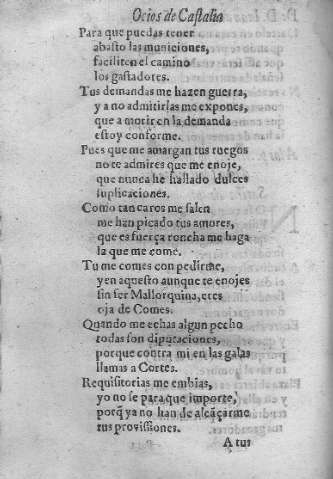 Ocios de Castalia
Para que puedas tener
abasto las municiones,
faciliten el camino
los gastadores.
Tus demandas me hazen guerra,
y a no admitirlas me expones,
que a morir en la demanda
estoy conforme.
Pues que me amargan tus ruegos
no te admires que me enoje,
que nunca he hallado dulces
suplicaciones.
Como tan caros me salen
me han picado tus amores,
que es fuerça roncha me haga
la que me come.
Tu me comes con pedirme,
y en aquesto aunque te enojes
sin ser Mallorquina, eres
oja de Comes.
Quando me echas algun pecho
todas son diputaciones,
porque contra mi en las galas
llamas a Cortes.
Requisitorias me embias,
yo no se para que importe,
porq̃ ya no han de alcãçarme
tus provisiones.
A tus